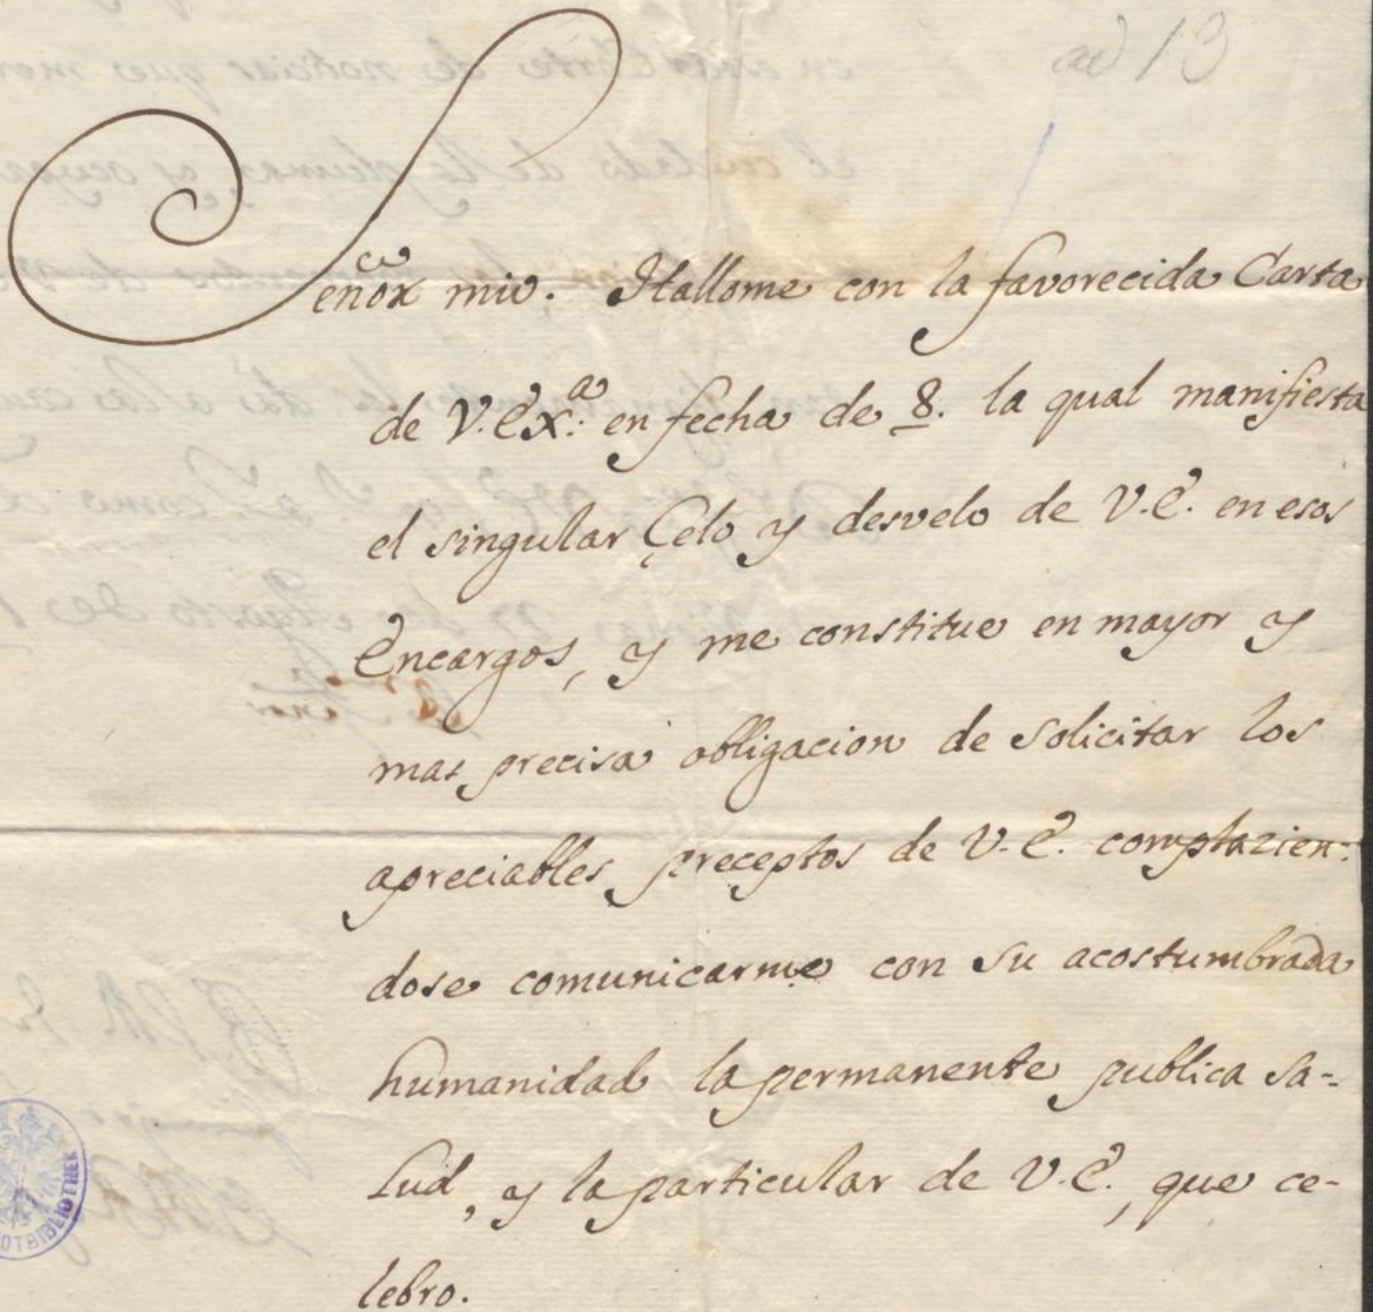 ad 13
Señor mio. Hallome con la favorecida Carta
de V.Ex.ª en fecha de 8. la qual manifiesta
el singular Çelo y desvelo de V.E. en esos
Encargos, y me constitue en mayor y
mas precisa obligacion de solicitar los
apreciables preceptos de V.E. complazien-
dose comunicarme con su acostumbrada
humanidad la permanente publica sa-
lud, y la particular de V.E., que ce-
lebro.